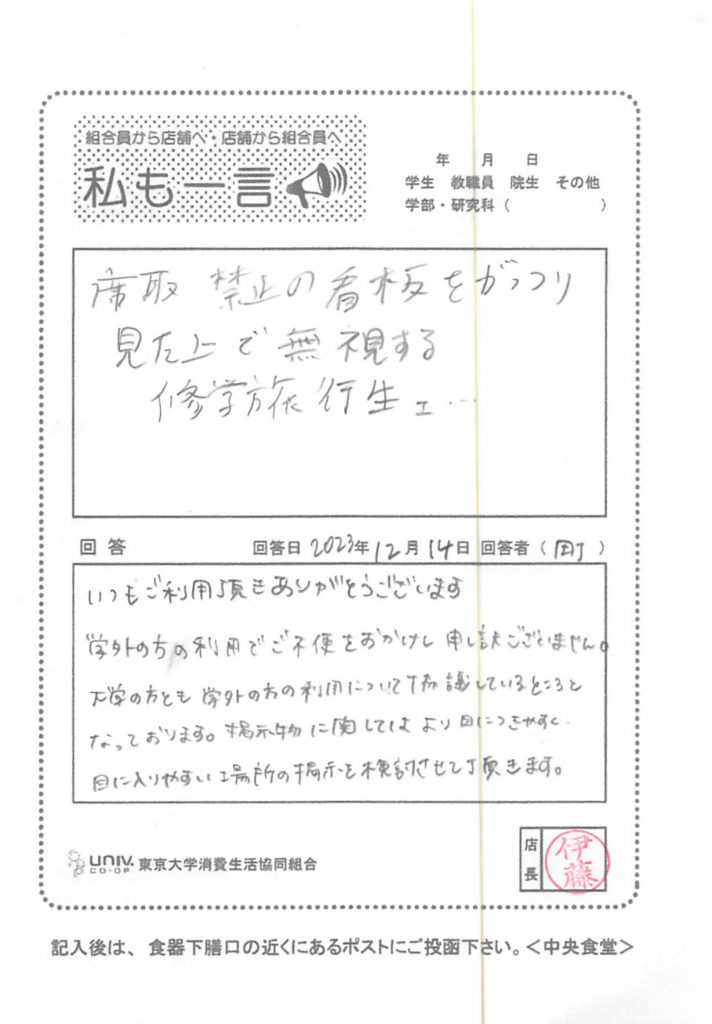 組合員から店舗へ・店舗から組合員へ
私も一言
年 月 日
学生 教職員 院生 その他
学部・研究科( )
席取 禁止の看板をがっつり
見た上で無視する
修学旅行生ェ…
回答 回答日 2023年12月14日 回答者(町)
いつもご利用頂きありがとうございます
学外の方の利用でご不便をおかけし申し訳ございません。
大学の方とも学外の方の利用について協議しているところと
なっております。掲示物に関してはより目につきやすく
目に入りやすい場所の掲示を検討させて頂きます。
UNIV. CO-OP 東京大学消費生活協同組合
店長 伊藤
記入後は、食器下膳口の近くにあるポストにご投函下さい。<中央食堂>